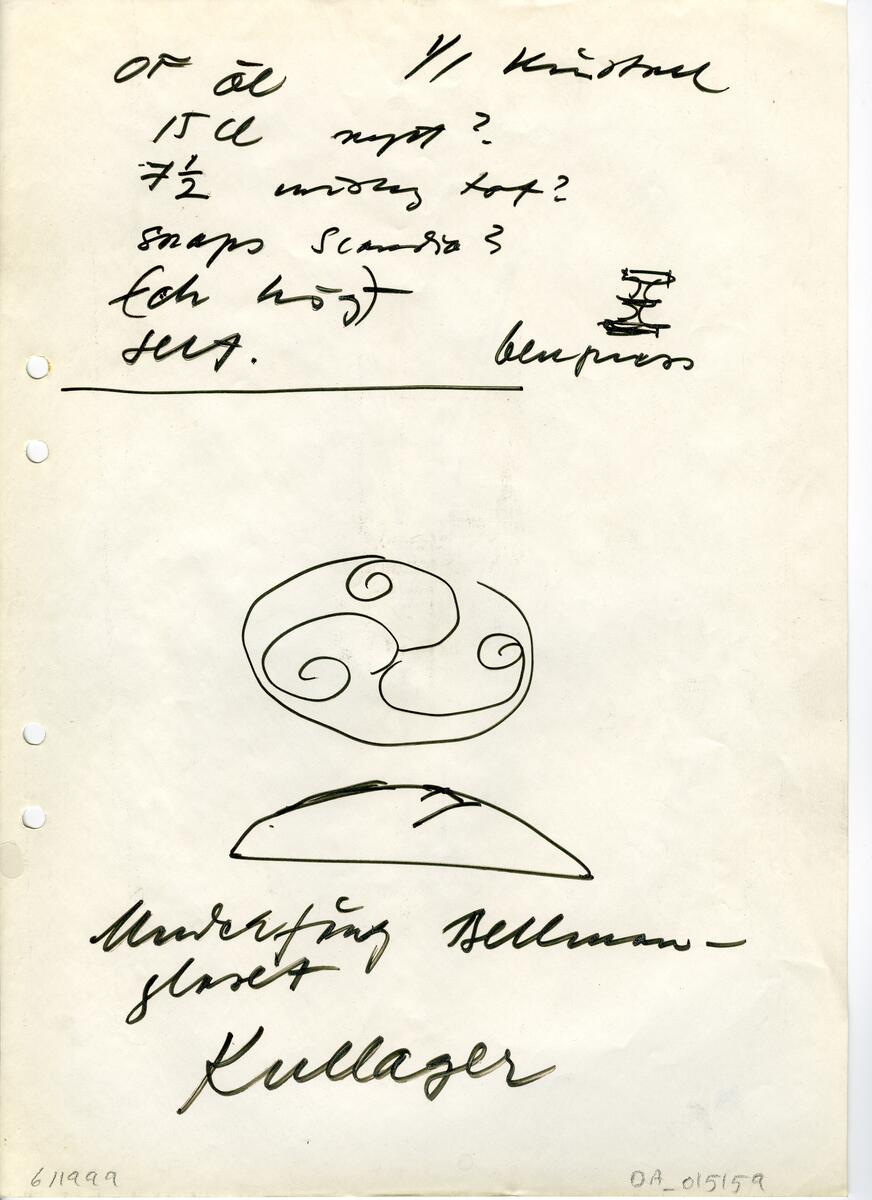 OF öl 1/1 Kristall
15 cl nytt?
7 1/2 whisky tot?
snaps Scandia?
(ch högt)
sett.
benpress
Bellman-
glaset
Kullager
6/1999 DA_015159